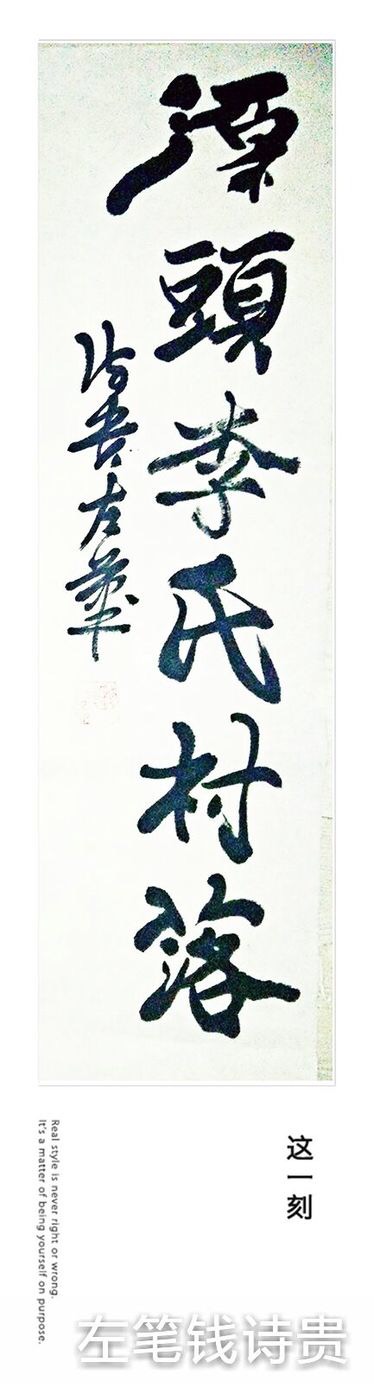 頭李氏村落
诗贵左筆
这一刻
Real style is never right or wrong.
It's a matter of being yourself on purpose.
左笔钱诗贵